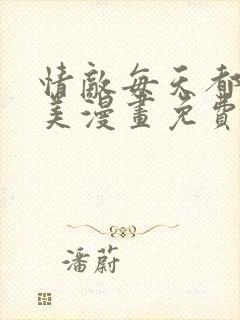 情敵每天都
美漫畫免費
潘蔚